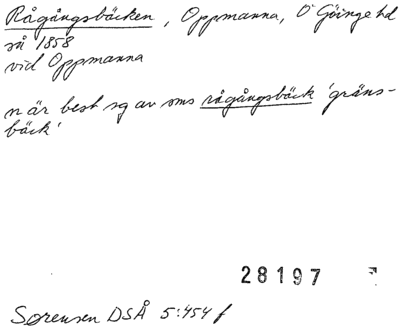 Rågångsbäcken, Oppmanna, Ö Göinge hd
så 1858
vid Oppmanna
n är best sg av sms rågångsbäck 'gräns-
bäck'
28197
Sørensen DSÅ 5:454 f